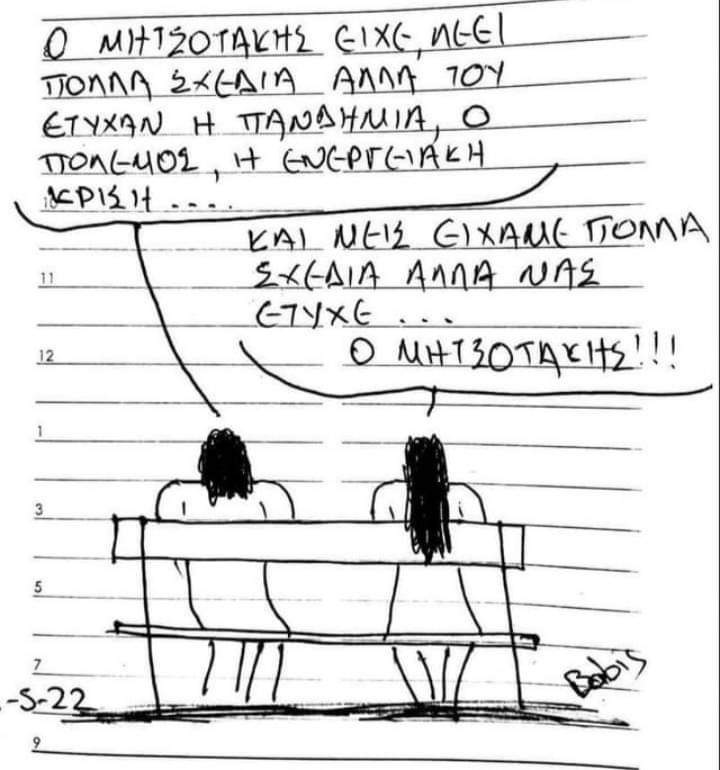 Ο ΜΗΤΣΟΤΑΚΗΣ ΕΙΧΕ, ΛΕΕΙ
ΠΟΛΛΑ ΣΧΕΔΙΑ ΑΛΛΑ ΤΟΥ
ΕΤΥΧΑΝ Η ΠΑΝΔΗΜΙΑ, Ο
ΠΟΛΕΜΟΣ, Η ΕΝΕΡΓΕΙΑΚΗ
ΚΡΙΣΗ ....
ΚΑΙ ΜΕΙΣ ΕΙΧΑΜΕ ΠΟΛΛΑ
ΣΧΕΔΙΑ ΑΛΛΑ ΜΑΣ
ΕΤΥΧΕ ...
Ο ΜΗΤΣΟΤΑΚΗΣ!!!
11
12
1
3
5
7
Babis
-5-22
9